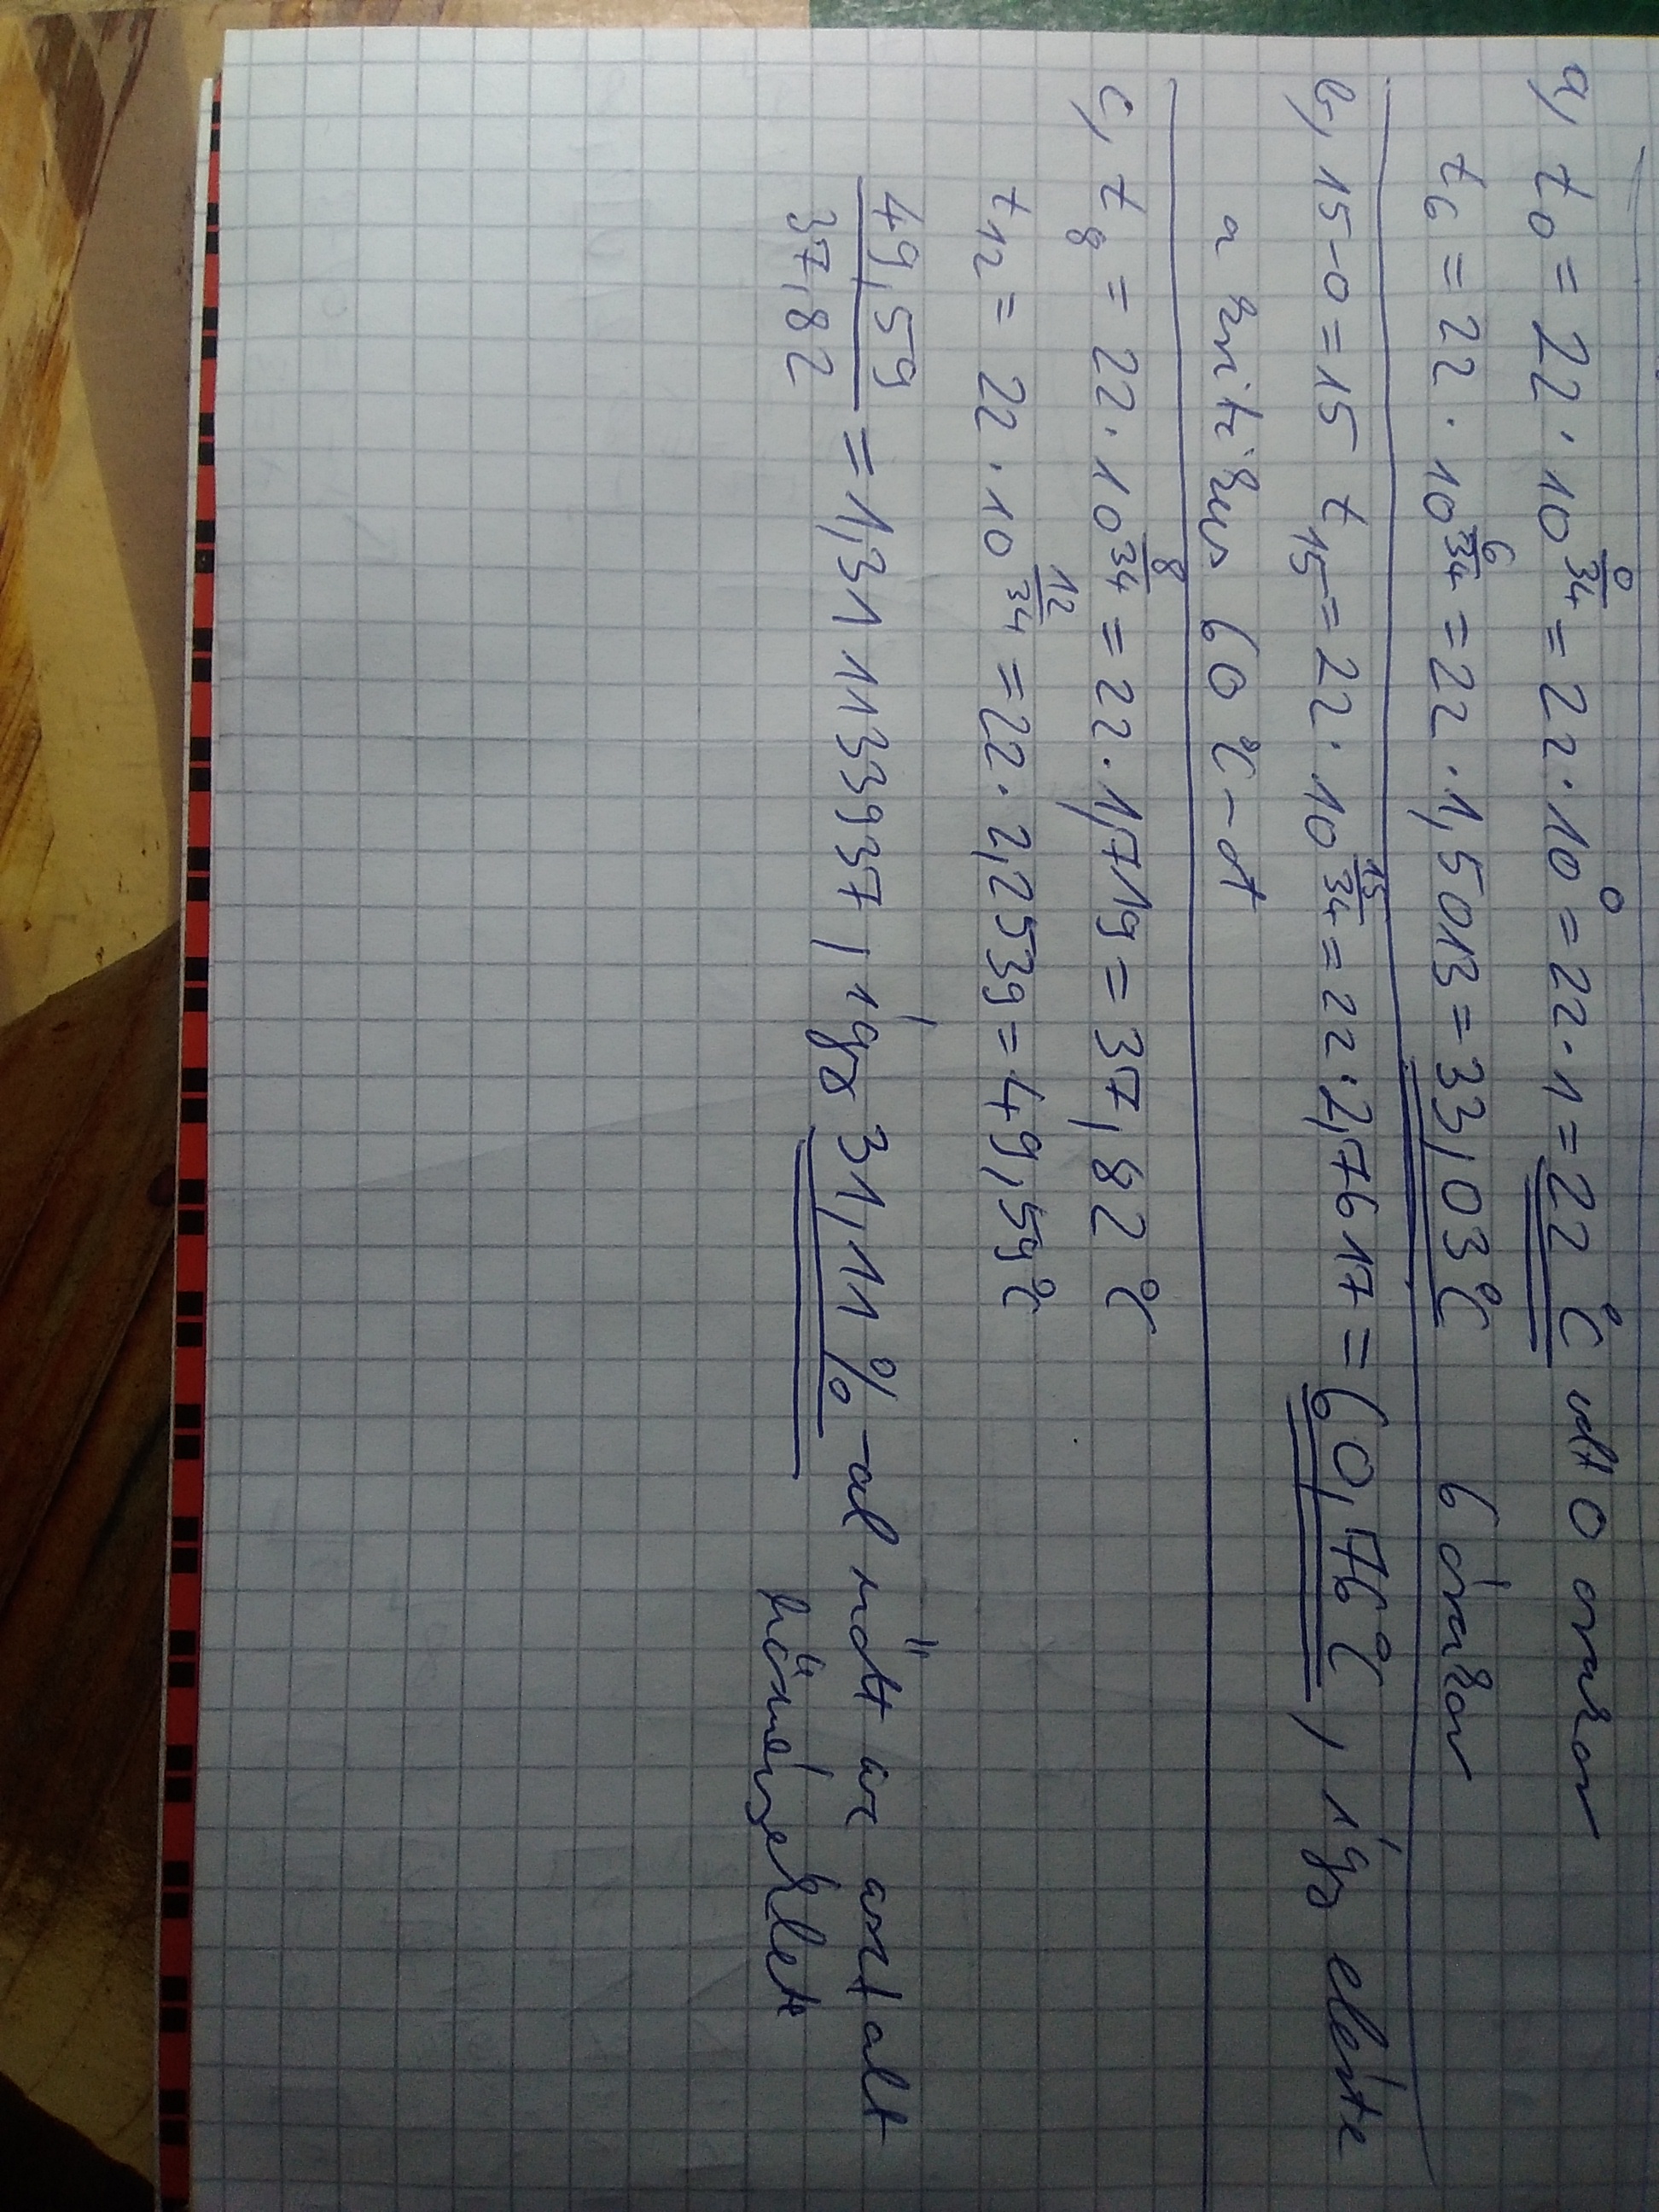 a, t₀ = 22 · 10^(0/34) = 22 · 10⁰ = 22 · 1 = 22 °C volt 0 órakor
t₆ = 22 · 10^(6/34) = 22 · 1,5013 = 33,03 °C 6 órakor
b, 15-0 = 15 t₁₅ = 22 · 10^(15/34) = 22 · 2,7617 = 60,76 °C, így elérte
a kritikus 60 °C-ot
c, t₈ = 22 · 10^(8/34) = 22 · 1,719 = 37,82 °C
t₁₂ = 22 · 10^(12/34) = 22 · 2,2539 = 49,59 °C
49,59/37,82 = 1,311133937, így 31,11 %-al nőtt az asztalt
hőmérséklete